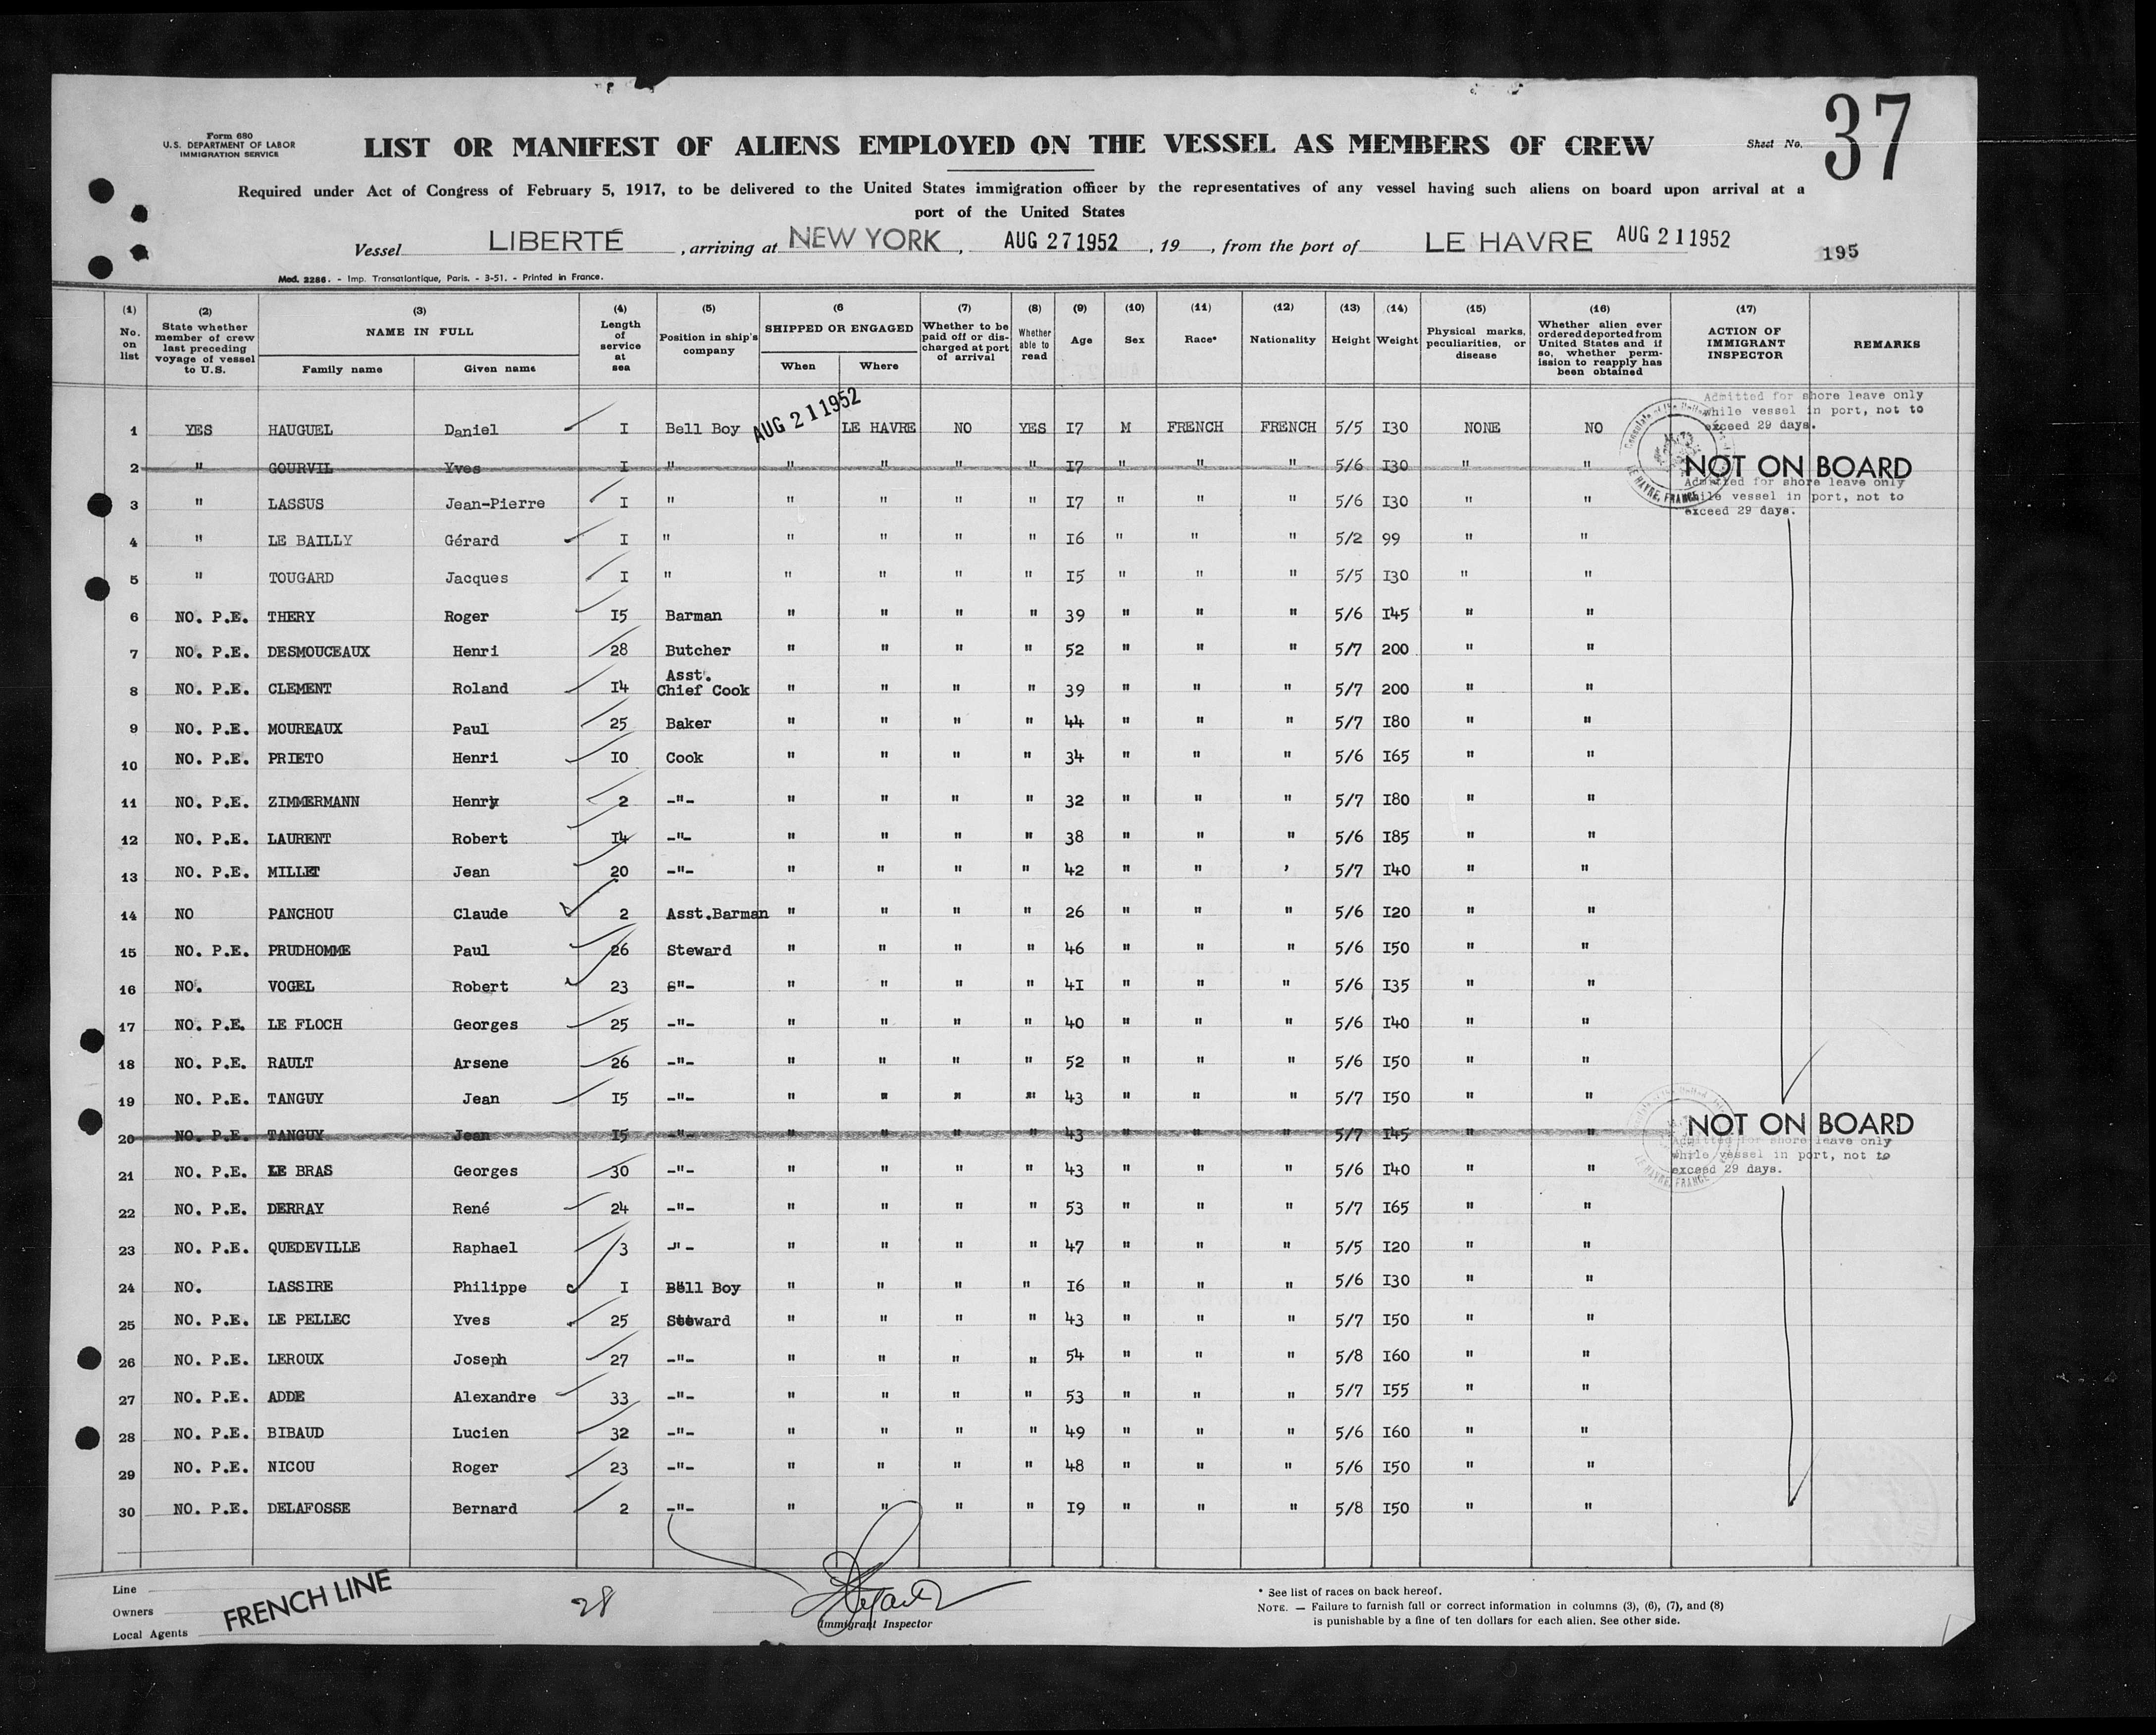 Form 680
U.S. DEPARTMENT OF LABOR
IMMIGRATION SERVICE
LIST OR MANIFEST OF ALIENS EMPLOYED ON THE VESSEL AS MEMBERS OF CREW
Sheet No. 37
Required under Act of Congress of February 5, 1917, to be delivered to the United States immigration officer by the representatives of any vessel having such aliens on board upon arrival at a
port of the United States
Vessel LIBERTÉ, arriving at NEW YORK, AUG 27 1952, 19 , from the port of LE HAVRE AUG 21 1952
195
Mod. 2286. - Imp. Transatlantique, Paris. - 3-51. - Printed in France.
(1) No. on list (2) State whether member of crew last preceding voyage of vessel to U.S. (3) NAME IN FULL Family name Given name (4) Length of service at sea (5) Position in ship's company (6 SHIPPED OR ENGAGED When Where (7) Whether to be paid off or discharged at port of arrival (8) Whether able to read (9) Age (10) Sex (11) Race* (12) Nationality (13) Height (14) Weight (15) Physical marks, peculiarities, or disease (16) Whether alien ever ordered deported from United States and if so, whether permission to reapply has been obtained (17) ACTION OF IMMIGRANT INSPECTOR REMARKS
Admitted for shore leave only
while vessel in port, not to
exceed 29 days.
1 YES HAUGUEL Daniel I Bell Boy AUG 21 1952 LE HAVRE NO YES I7 M FRENCH FRENCH 5/5 I30 NONE NO
2 " GOURVIL Yves I " " " " " I7 " " " 5/6 I30 " " NOT ON BOARD
Admitted for shore leave only
while vessel in port, not to
exceed 29 days.
3 " LASSUS Jean-Pierre I " " " " " I7 " " " 5/6 I30 " "
4 " LE BAILLY Gérard I " " " " " I6 " " " 5/2 99 " "
5 " TOUGARD Jacques I " " " " " I5 " " " 5/5 I30 " "
6 NO. P.E. THERY Roger I5 Barman " " " " 39 " " " 5/6 I45 " "
7 NO. P.E. DESMOUCEAUX Henri 28 Butcher " " " " 52 " " " 5/7 200 " "
8 NO. P.E. CLEMENT Roland I4 Asst. Chief Cook " " " " 39 " " " 5/7 200 " "
9 NO. P.E. MOUREAUX Paul 25 Baker " " " " 44 " " " 5/7 I80 " "
10 NO. P.E. PRIETO Henri I0 Cook " " " " 34 " " " 5/6 I65 " "
11 NO. P.E. ZIMMERMANN Henry 2 -"- " " " " 32 " " " 5/7 I80 " "
12 NO. P.E. LAURENT Robert I4 -"- " " " " 38 " " " 5/6 I85 " "
13 NO. P.E. MILLET Jean 20 -"- " " " " 42 " " ' 5/7 I40 " "
14 NO PANCHOU Claude 2 Asst.Barman " " " " 26 " " " 5/6 I20 " "
15 NO. P.E. PRUDHOMME Paul 26 Steward " " " " 46 " " " 5/6 I50 " "
16 NO. VOGEL Robert 23 -"- " " " " 4I " " " 5/6 I35 " "
17 NO. P.E. LE FLOCH Georges 25 -"- " " " " 40 " " " 5/6 I40 " "
18 NO. P.E. RAULT Arsene 26 -"- " " " " 52 " " " 5/6 I50 " "
19 NO. P.E. TANGUY Jean I5 -"- " " " " 43 " " " 5/7 I50 " "
20 NO. P.E. TANGUY Jean I5 -"- " " " " 43 " " " 5/7 I45 " " NOT ON BOARD
Admitted for shore leave only
while vessel in port, not to
exceed 29 days.
21 NO. P.E. LE BRAS Georges 30 -"- " " " " 43 " " " 5/6 I40 " "
22 NO. P.E. DERRAY René 24 -"- " " " " 53 " " " 5/7 I65 " "
23 NO. P.E. QUEDEVILLE Raphael 3 -"- " " " " 47 " " " 5/5 I20 " "
24 NO. LASSIRE Philippe I Bell Boy " " " " I6 " " " 5/6 I30 " "
25 NO. P.E. LE PELLEC Yves 25 Steward " " " " 43 " " " 5/7 I50 " "
26 NO. P.E. LEROUX Joseph 27 -"- " " " " 54 " " " 5/8 I60 " "
27 NO. P.E. ADDE Alexandre 33 -"- " " " " 53 " " " 5/7 I55 " "
28 NO. P.E. BIBAUD Lucien 32 -"- " " " " 49 " " " 5/6 I60 " "
29 NO. P.E. NICOU Roger 23 -"- " " " " 48 " " " 5/6 I50 " "
30 NO. P.E. DELAFOSSE Bernard 2 -"- " " " " I9 " " " 5/8 I50 " "
Line
Owners FRENCH LINE
Local Agents
28
Immigrant Inspector
* See list of races on back hereof.
NOTE. — Failure to furnish full or correct information in columns (3), (6), (7), and (8)
is punishable by a fine of ten dollars for each alien. See other side.